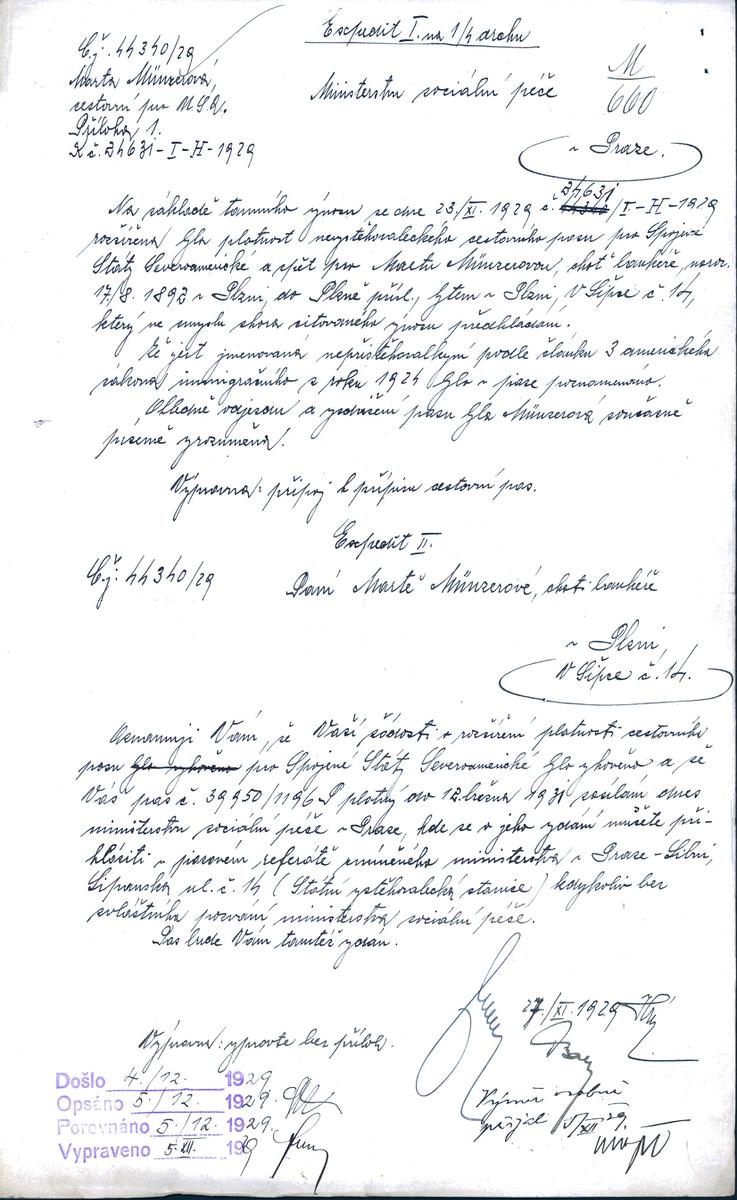 Expedit I. na 1/4 archu
Čj. 44340/29
Marta Münzerová,
cestovní pas U.S.A.
Příloha 1.
K č. 34631-I-H-1929
Ministerstvu sociální péče
M
660
v Praze.
Na základě tamního výnosu ze dne 23./XI. 1929 č. 34631/I-H-1929
rozšířena byla platnost nevystěhovaleckého cestovního pasu pro Spojené
Státy Severoamerické a zpět pro Martu Münzerovou, choť bankéře, naroz.
17/8. 1892 v Plzni, do Plzně přísl., bytem v Plzni, V Šipce č. 14,
který ve smyslu shora citovaného výnosu předkládám.
Že jest jmenovaná nepřistěhovalkyní podle článku 3 amerického
zákona immigračního z roku 1924 bylo v pase poznamenáno.
Ohledně odjezdu a vyzdvižení pasu byla Münzerová současně
písemně vyrozuměna.
Výpravna: připoj k přípisu cestovní pas.
Expedit II.
Čj. 44340/29
Paní Martě Münzerové, choti bankéře
v Plzni,
V Šipce č. 14.
Oznamuji Vám, že Vaší žádosti o rozšíření platnosti cestovního
pasu bylo vyhověno pro Spojené Státy Severoamerické bylo vyhověno a že
Váš pas č. 39950/1196 P platný do 12. března 1931 zasílám dnes
ministerstvu sociální péče v Praze, kde se o jeho vydání můžete při-
hlásiti v pasovém referátě zmíněného ministerstva v Praze-Libni,
Lipanská ul. č. 14 (Státní vystěhovalecká stanice) kdykoliv bez
zvláštního pozvání ministerstva sociální péče.
Pas bude Vám tamtéž vydán.
27./XI. 1929
Výpravna: vypravte bez příloh.
Došlo 4./12. 1929
Opsáno 5/12. 1929.
Porovnáno 5/12. 1929.
Vypraveno 5.XII. 1929
Výměr osobně
přijal 5/XII 29.